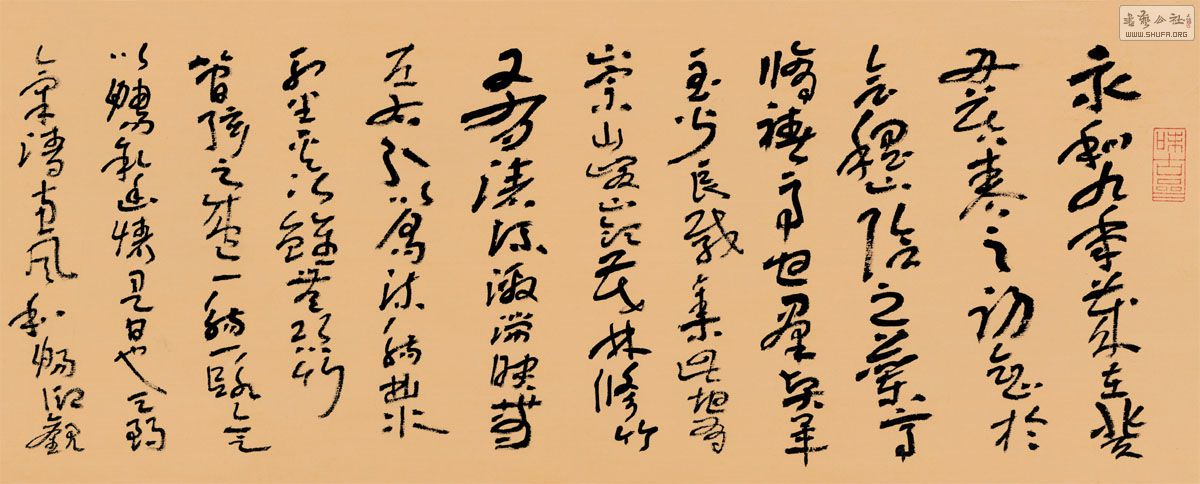 永和九年歲在癸
丑暮春之初會於
會稽山陰之蘭亭
脩禊事也羣賢畢
至少長咸集此地有
崇山峻嶺茂林修竹
又有清流激湍映帶
左右引以為流觴曲水
列坐其次雖無絲竹
管弦之盛一觴一詠亦足
以暢敘幽情是日也天朗
氣清惠風和暢仰觀
書藝公社
WWW.SHUFA.ORG